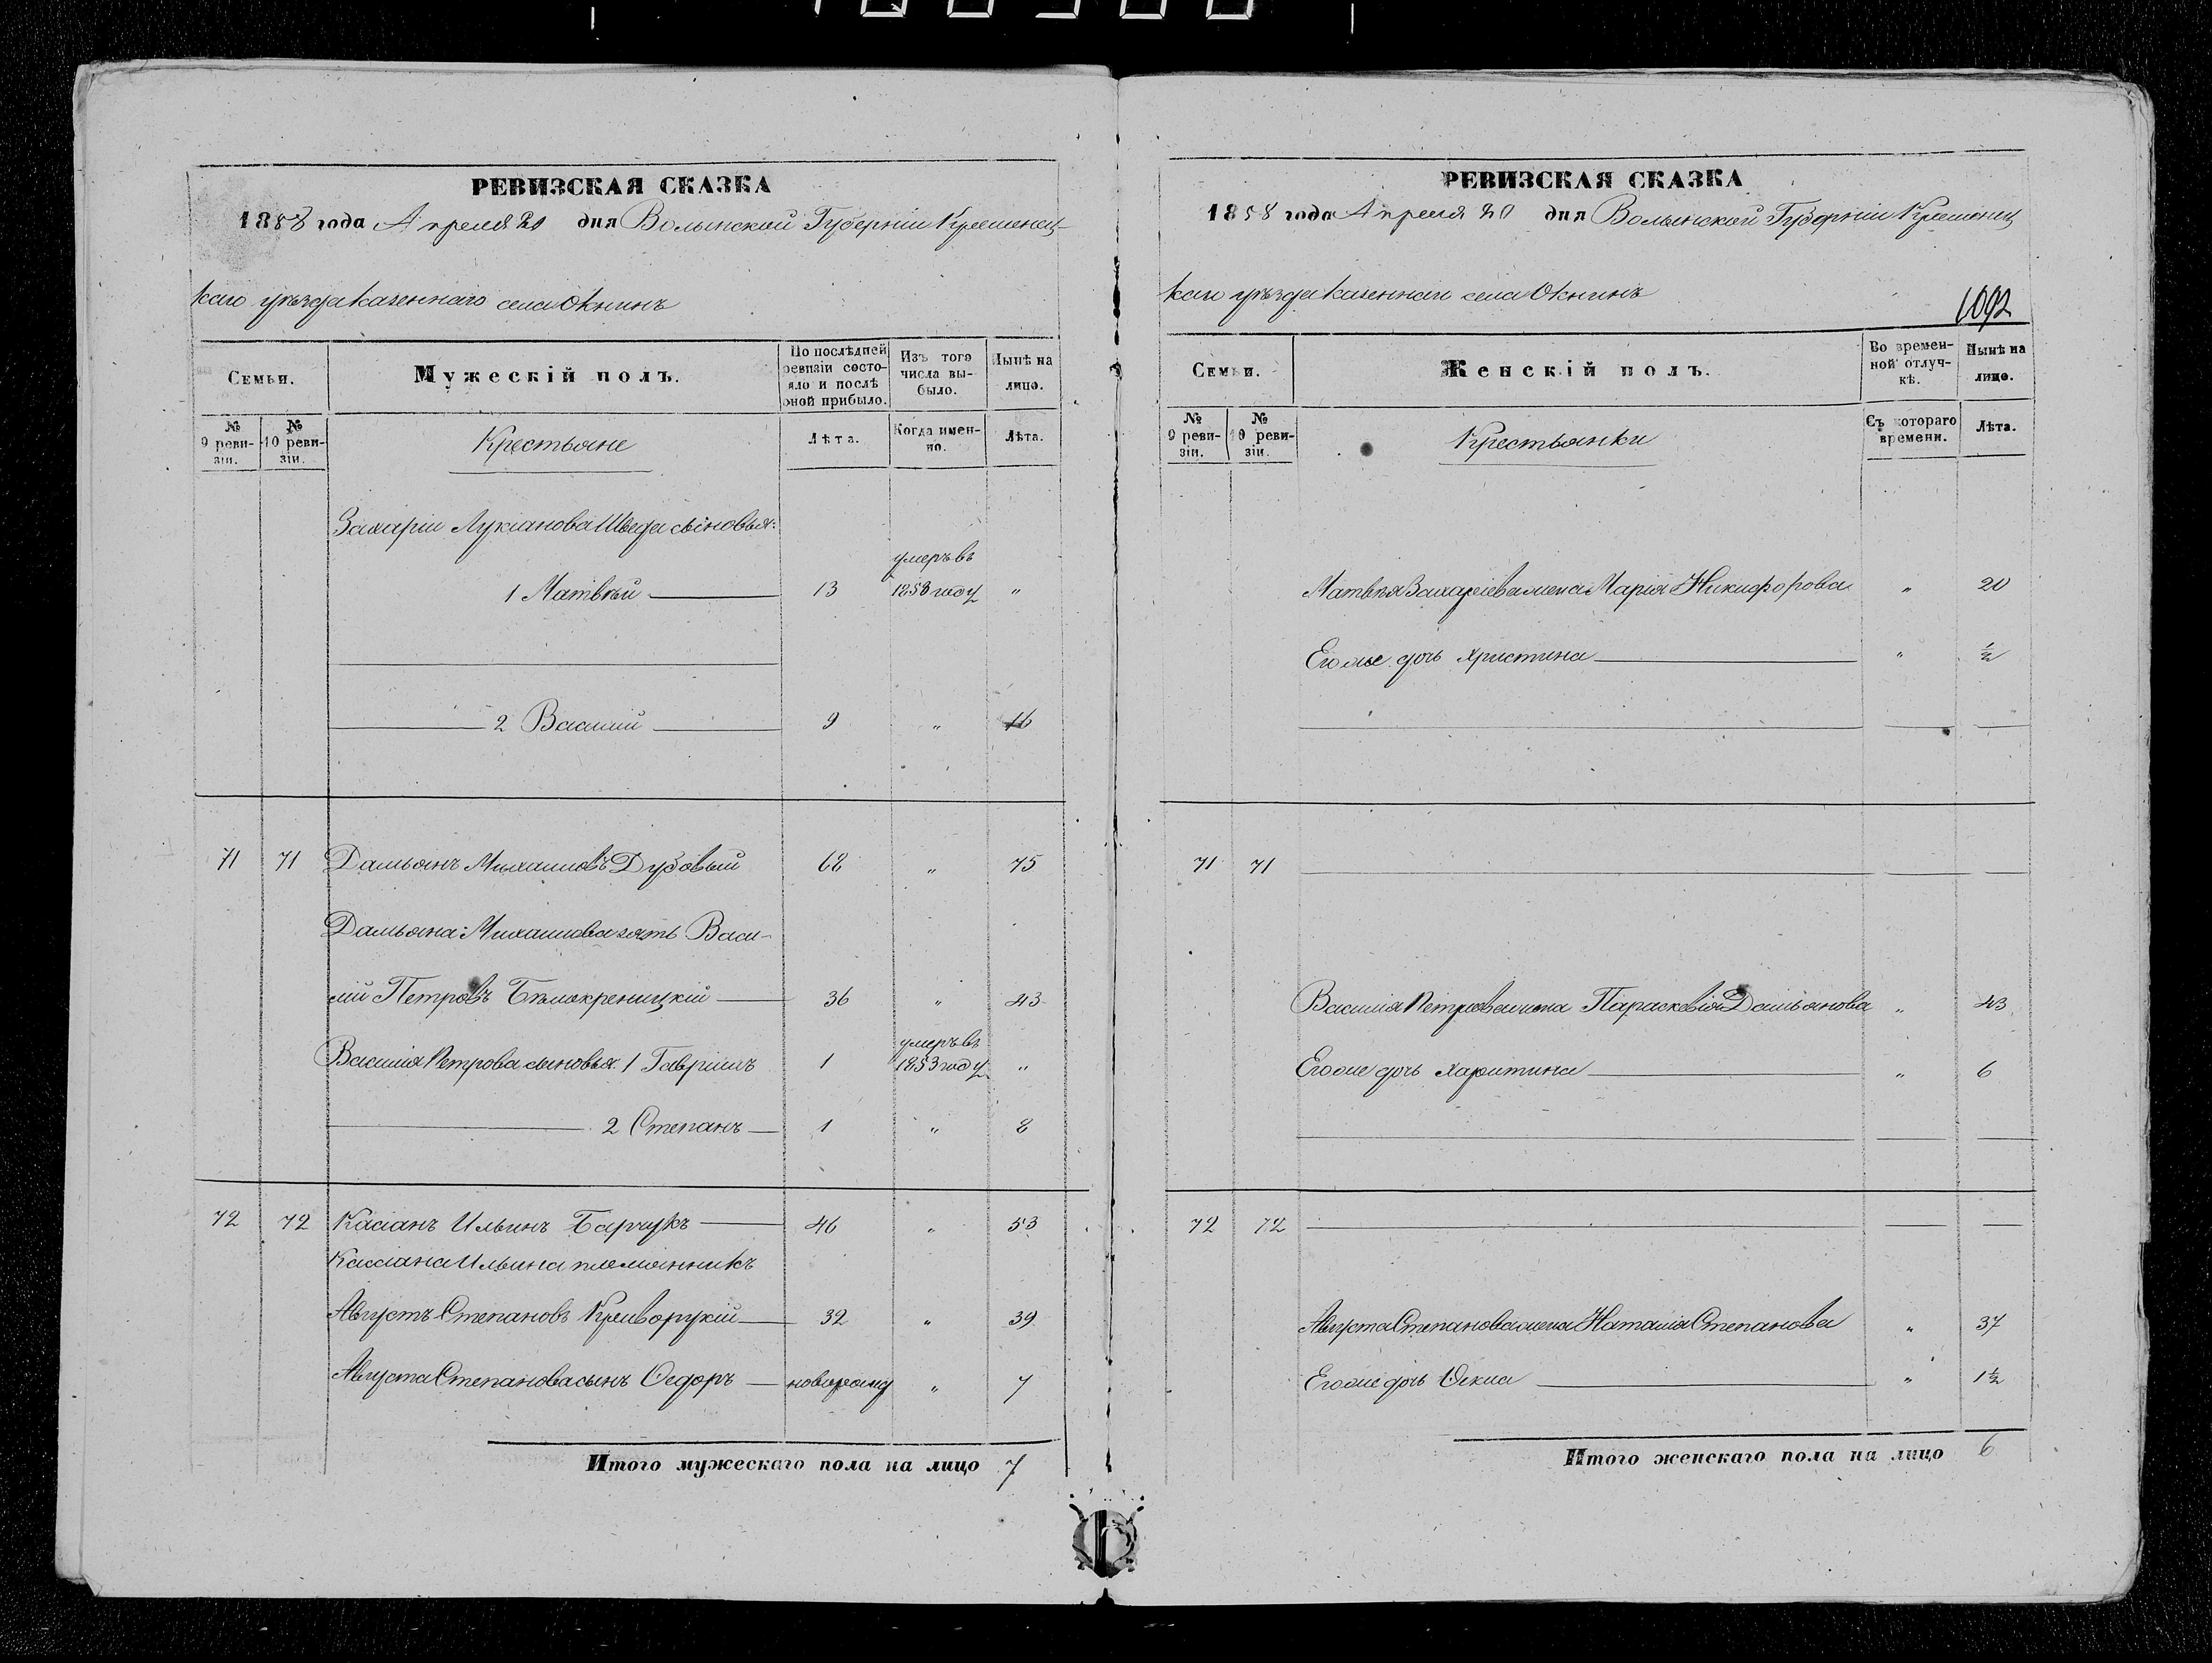 РЕВИЗСКАЯ СКАЗКА
1858 года Апреля 20 дня Волынской Губерніи Кременец-
каго уѣзда казеннаго села Окнинъ
Семьи.
Мужескій полъ.
По послѣдней ревизіи состояло и послѣ оной прибыло.
Изъ того числа выбыло.
Нынѣ на лицо.
№ 9 ревизіи.
№ 10 ревизіи.
Крестьяне
Лѣта.
Когда именно.
Лѣта.
Захарія Лукіанова Шведа сыновья:
1 Матвѣй 13 умеръ въ 1858 году "
2 Василій 9 " 16
71 71 Дамьянъ Михаиловъ Дубовый 68 " 75
Дамьяна Михаилова зять Васи-
лій Петровъ Бѣлокреницкій 36 " 43
Василія Петрова сыновья 1 Гавріилъ 1 умеръ въ 1853 году "
2 Степанъ 1 " 8
72 72 Касіанъ Ильинъ Барчукъ 46 " 53
Кассіана Ильина племянникъ
Августъ Степановъ Криворукій 32 " 39
Августа Степанова сынъ Ѳедоръ новорожд " 7
Итого мужескаго пола на лицо 7
РЕВИЗСКАЯ СКАЗКА
1858 года Апреля 20 дня Волынской Губерніи Кременец
каго уѣзда казеннаго села Окнинъ
1092
Семьи.
Женскій полъ.
Во временной отлучкѣ.
Нынѣ на лицо.
№ 9 ревизіи.
№ 10 ревизіи.
Крестьянки
Съ котораго времени.
Лѣта.
Матвѣя Захаріева жена Марія Никифорова " 20
Его же дочь Христина " ½
71 71
Василія Петрова жена Параскевія Дамьянова " 43
Его же дочь Харитина " 6
72 72
Августа Степанова жена Наталія Степанова " 37
Его же дочь Ѳекла " 1½
Итого женскаго пола на лицо 6